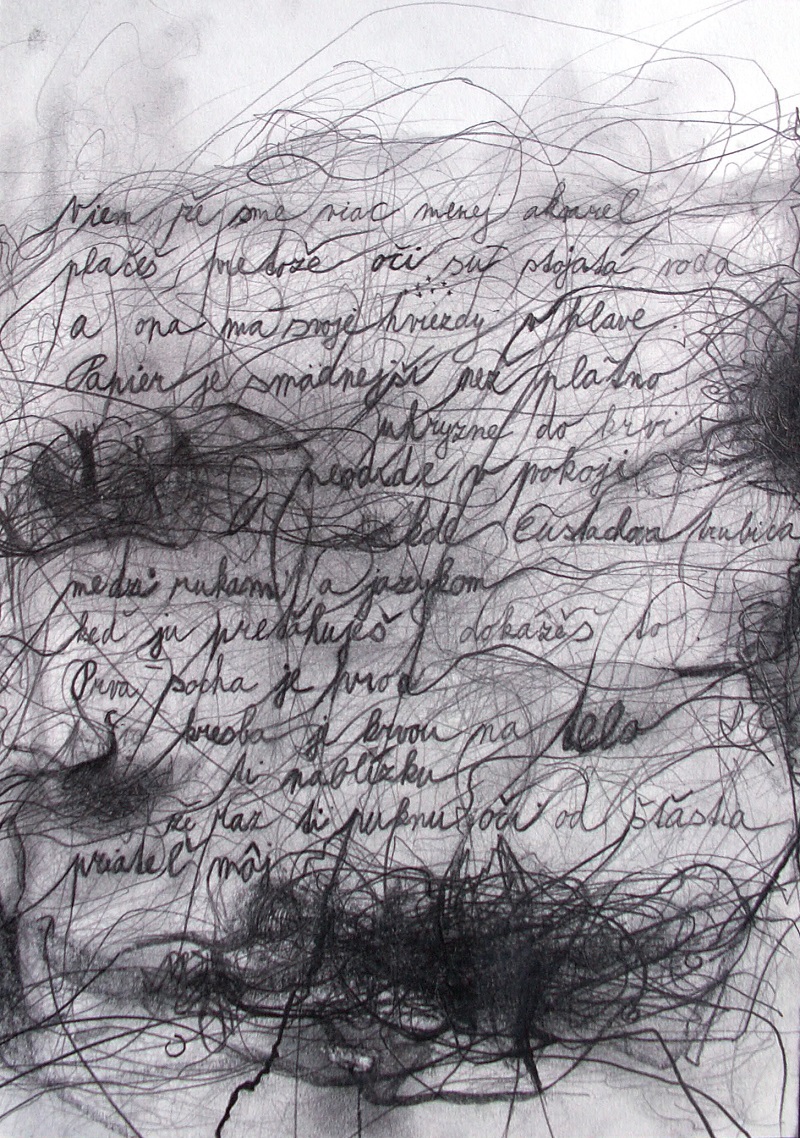 Viem, že sme viac menej akvarel
plačeš, pretože oči sú stojatá voda
a ona má svoje hviezdy v hlave.
Papier je smädnejší než plátno.
uhryzne do krvi
neodíde v pokoji
kde Eustachova trubica
medzi rukami a jazykom
keď ju preťahuješ dokážeš to.
Prvá socha je
kresba je krvou na telo
ti nablízku
že raz ti puknú oči od šťastia
priateľ môj